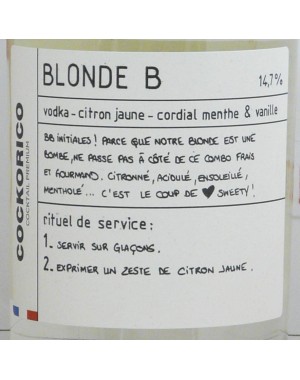 BLONDE B
14,7%
vodka - citron jaune - cordial menthe & vanille
BB INITIALES ! PARCE QUE NOTRE BLONDE EST UNE
BOMBE, NE PASSE PAS À CÔTÉ DE CE COMBO FRAIS
ET GOURMAND. CITRONNÉ, ACIDULÉ, ENSOLEILLÉ,
MENTHOLÉ... C'EST LE COUP DE ♥ SWEETY !
rituel de service :
1- SERVIR SUR GLAÇONS.
2- EXPRIMER UN ZESTE DE CITRON JAUNE.
COCKORICO
COCKTAIL PREMIUM